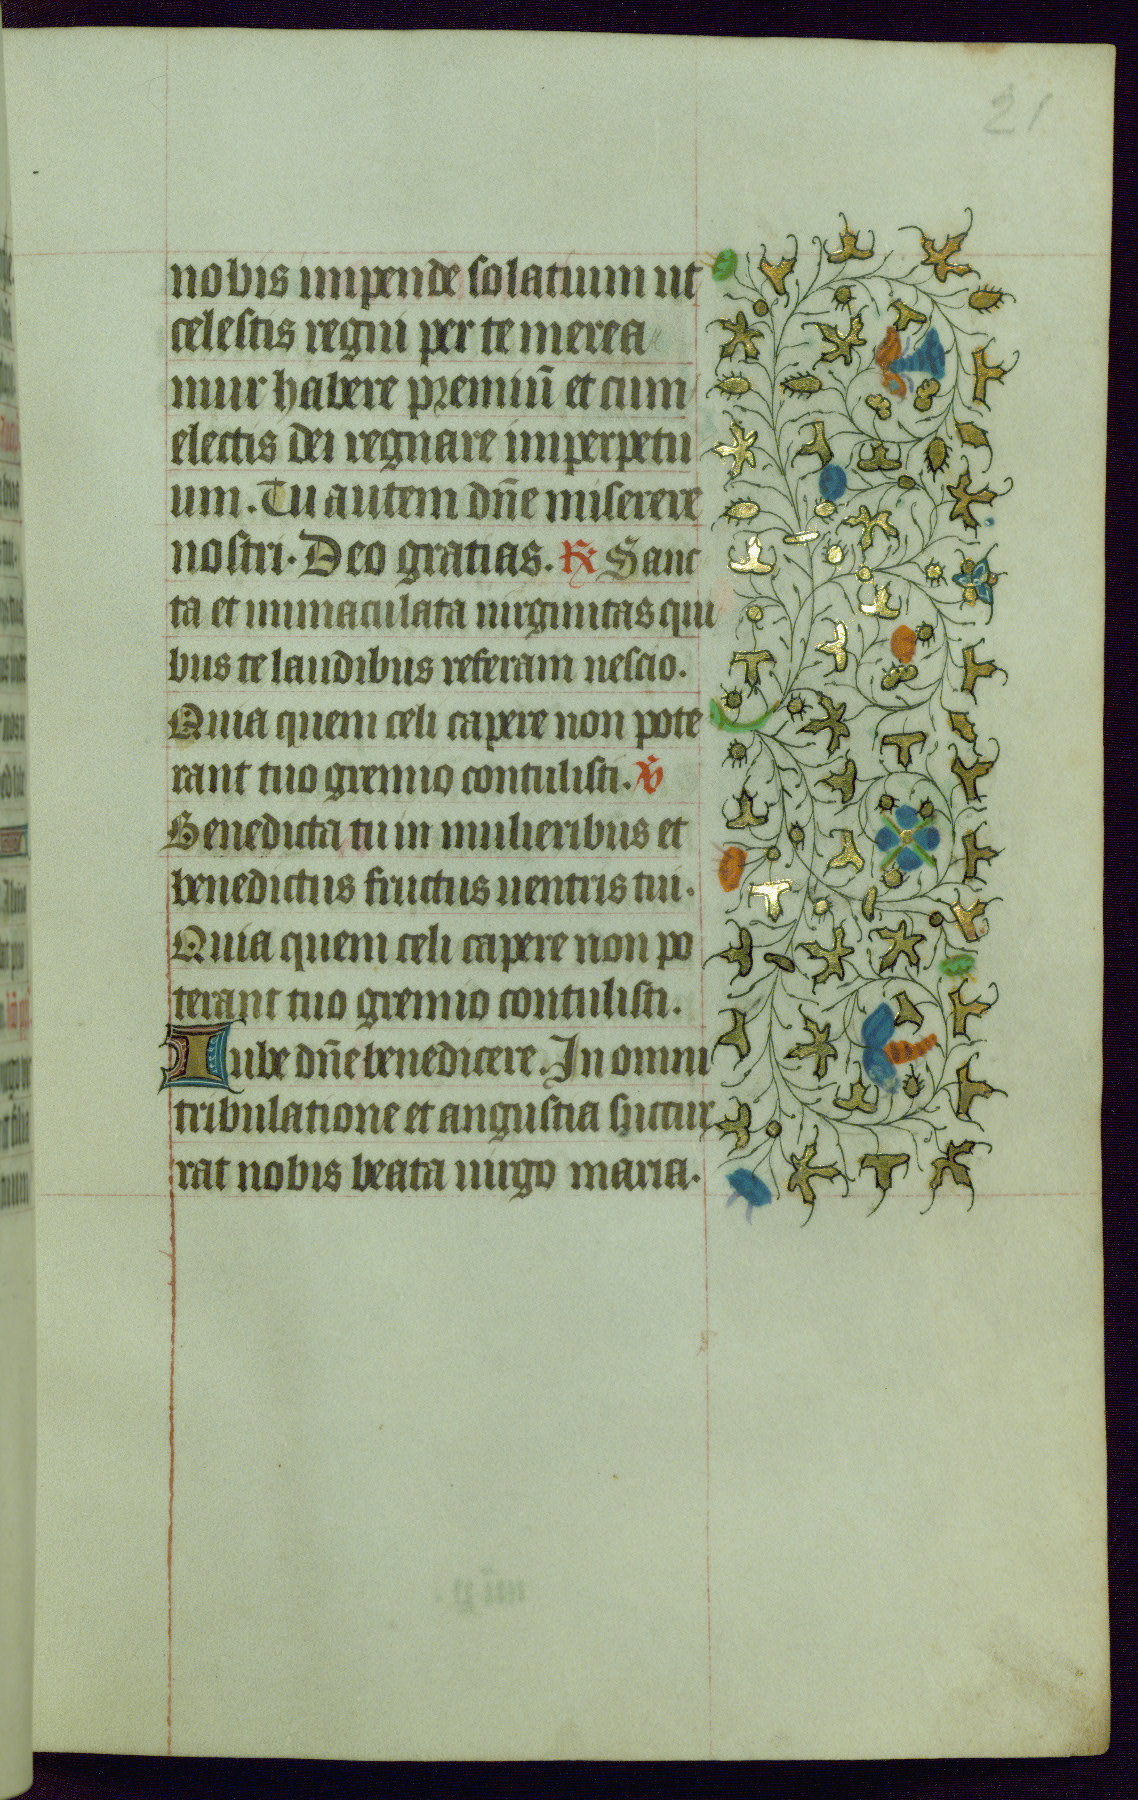 21
nobis impende solatium ut
celestis regni per te merea
mur habere premiū et cum
electis dei regnare imperpetu
um. Tu autem dn̄e miserere
nostri. Deo gratias. R Sanc
ta et immaculata uirginitas qui
bus te laudibus referam nescio.
Quia quem celi capere non pote
rant tuo gremio contulisti. V
Benedicta tu in mulieribus et
benedictus fructus uentris tui.
Quia quem celi capere non po
terant tuo gremio contulisti.
Iube dn̄e benedicere. In omni
tribulatione et angustia succur
rat nobis beata uirgo maria.